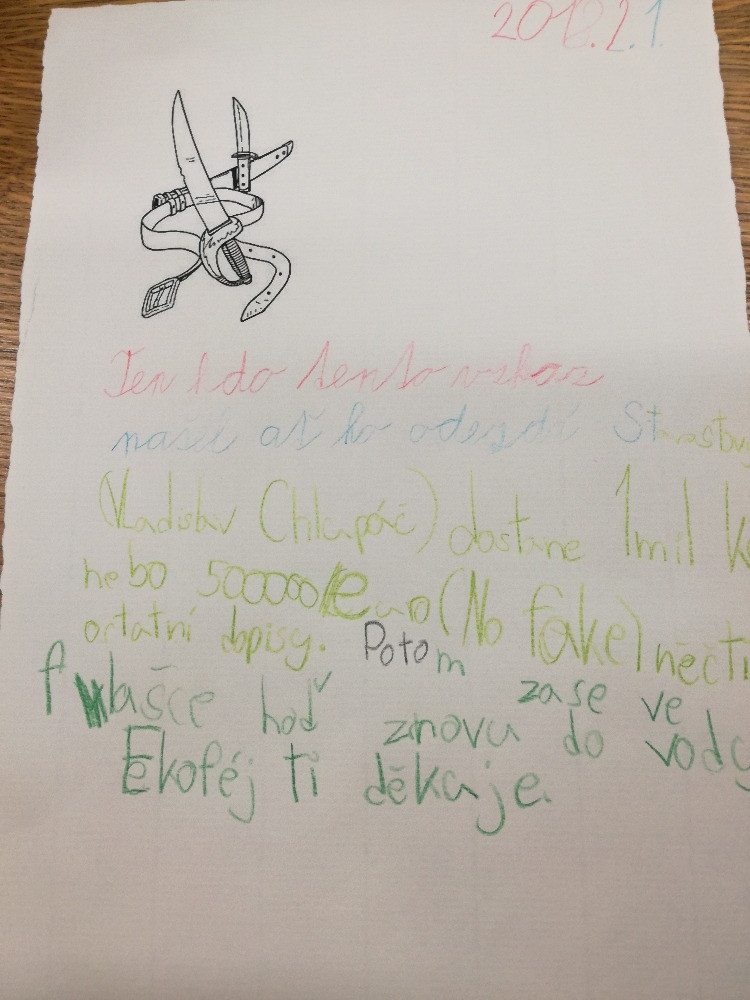 2018.2.1.
Ten kdo tento vzkaz
našel ať ho odevzdá Starostovy
(Vladislav Chlupáč) dostane 1 mil Kč
nebo 500000 Euro (No fake) něčti
ostatní dopisy. Potom zase ve
flašce hoď znovu do vody
Ekoféj ti děkuje.